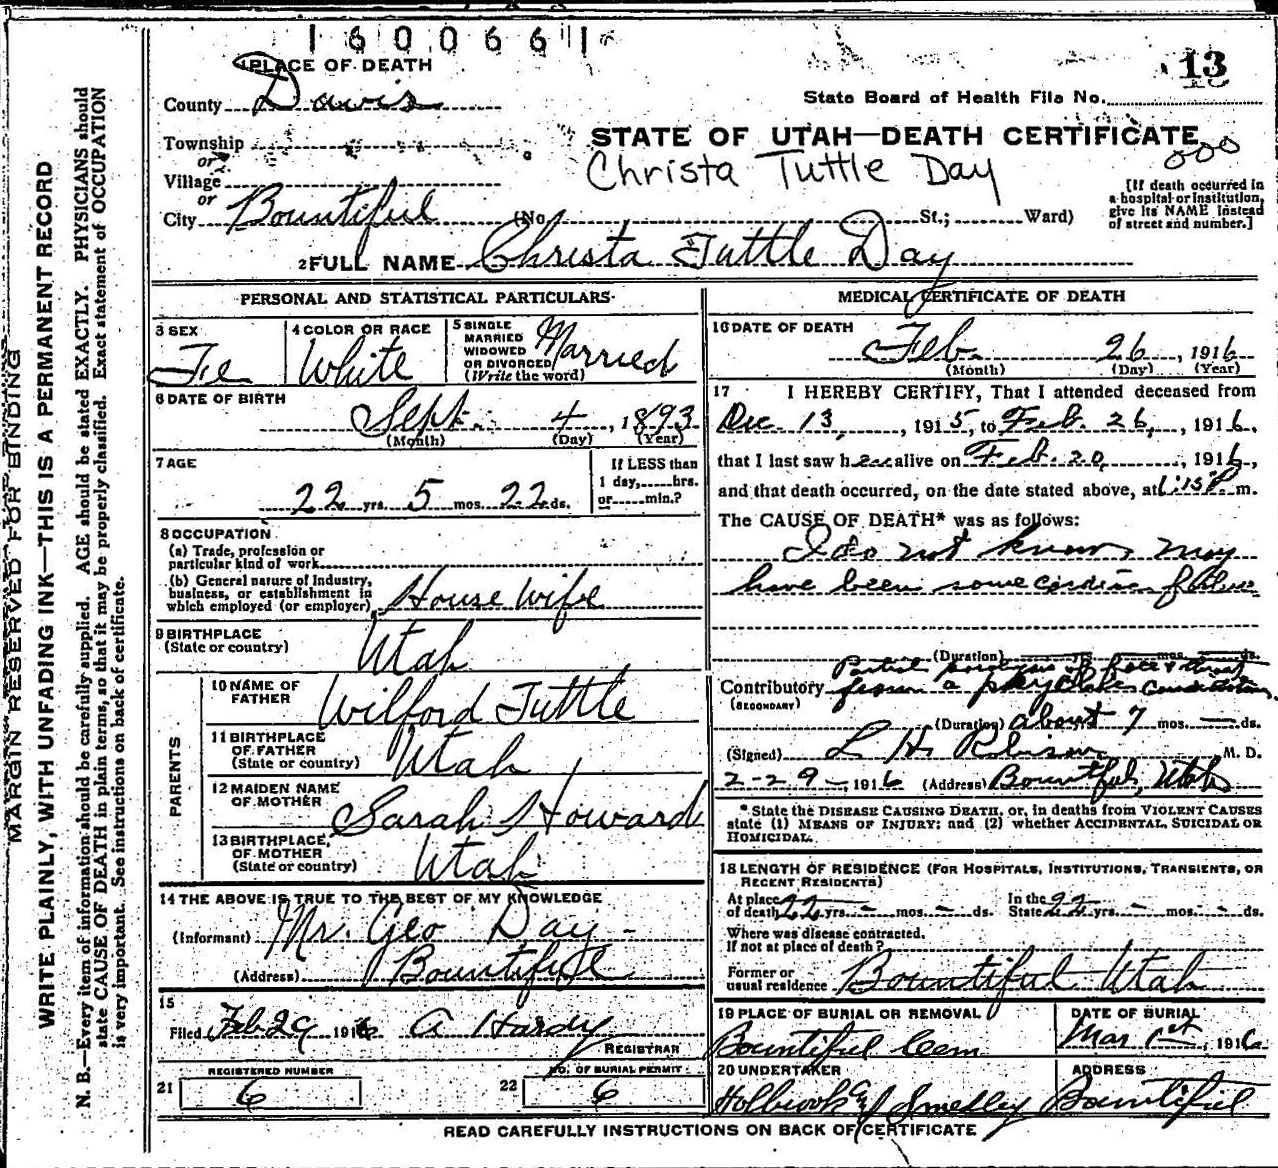 1600661
13
1 PLACE OF DEATH
County Davis
State Board of Health File No.
Township
or
Village
or
City Bountiful (No. St.; Ward)
STATE OF UTAH—DEATH CERTIFICATE
000
Christa Tuttle Day
[If death occurred in
a hospital or institution,
give its NAME instead
of street and number.]
2 FULL NAME Christa Tuttle Day
PERSONAL AND STATISTICAL PARTICULARS
3 SEX
Fe
4 COLOR OR RACE
White
5 SINGLE
MARRIED
WIDOWED
OR DIVORCED
(Write the word)
Married
6 DATE OF BIRTH
Sept. 4, 1893
(Month) (Day) (Year)
7 AGE
22 yrs. 5 mos. 22 ds.
If LESS than
1 day, hrs.
or min.?
8 OCCUPATION
(a) Trade, profession or
particular kind of work
(b) General nature of industry,
business, or establishment in
which employed (or employer) House Wife
9 BIRTHPLACE
(State or country)
Utah
PARENTS
10 NAME OF
FATHER
Wilford Tuttle
11 BIRTHPLACE
OF FATHER
(State or country)
Utah
12 MAIDEN NAME
OF MOTHER
Sarah Howard
13 BIRTHPLACE
OF MOTHER
(State or country)
Utah
14 THE ABOVE IS TRUE TO THE BEST OF MY KNOWLEDGE
(Informant) Mr. Geo Day
(Address) Bountiful
15
Filed Feb 29 1916 A Hardy
REGISTRAR
REGISTERED NUMBER
21 6
NO. OF BURIAL PERMIT
22 6
MEDICAL CERTIFICATE OF DEATH
16 DATE OF DEATH
Feb. 26, 1916
(Month) (Day) (Year)
17 I HEREBY CERTIFY, That I attended deceased from
Dec. 13, 1915, to Feb. 26, 1916,
that I last saw her alive on Feb. 20, 1916,
and that death occurred, on the date stated above, at 1:15 P m.
The CAUSE OF DEATH* was as follows:
I do not know, may
have been some cardiac failure
(Duration) yrs. mos. ds.
Partial paralysis of face & throat
Contributory from a
(SECONDARY)
(Duration) about 7 mos. — ds.
(Signed) L H M. D.
2-29-, 1916 (Address) Bountiful, Utah
* State the DISEASE CAUSING DEATH, or, in deaths from VIOLENT CAUSES
state (1) MEANS OF INJURY; and (2) whether ACCIDENTAL, SUICIDAL OR
HOMICIDAL.
18 LENGTH OF RESIDENCE (FOR HOSPITALS, INSTITUTIONS, TRANSIENTS, OR
RECENT RESIDENTS)
At place
of death 22 yrs. - mos. - ds.
In the
State 22 yrs. - mos. - ds.
Where was disease contracted,
If not at place of death?
Former or
usual residence Bountiful Utah
19 PLACE OF BURIAL OR REMOVAL
Bountiful Cem
DATE OF BURIAL
Mar 1st, 1916
20 UNDERTAKER
Holbrook & Smedley
ADDRESS
Bountiful
READ CAREFULLY INSTRUCTIONS ON BACK OF CERTIFICATE
MARGIN RESERVED FOR BINDING
WRITE PLAINLY, WITH UNFADING INK—THIS IS A PERMANENT RECORD
N. B.—Every item of information should be carefully supplied. AGE should be stated EXACTLY. PHYSICIANS should
state CAUSE OF DEATH in plain terms, so that it may be properly classified. Exact statement of OCCUPATION
is very important. See instructions on back of certificate.